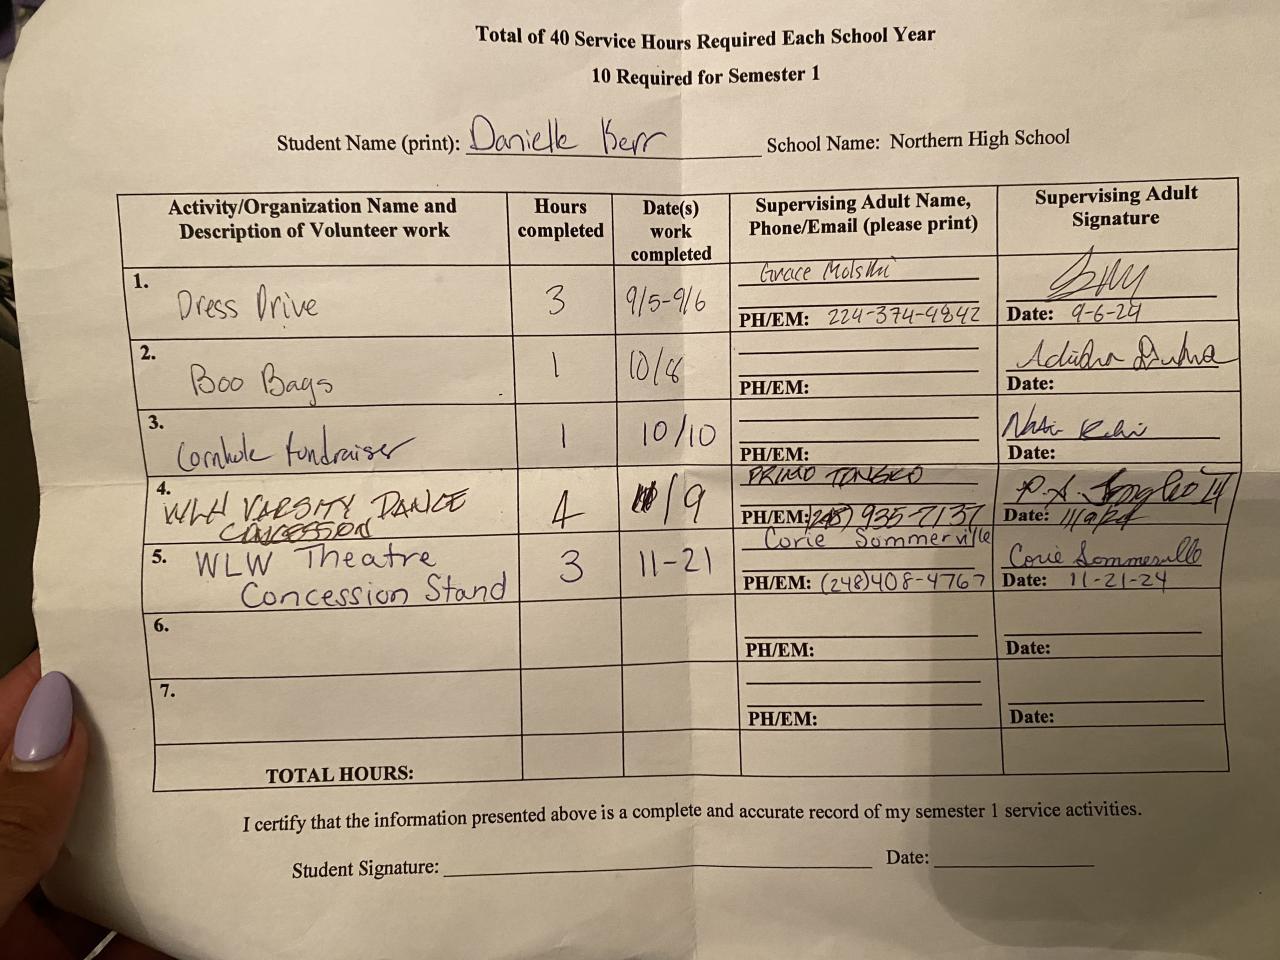 Total of 40 Service Hours Required Each School Year
10 Required for Semester 1
Student Name (print): Danielle Kerr School Name: Northern High School
Activity/Organization Name and Description of Volunteer work
Hours completed
Date(s) work completed
Supervising Adult Name, Phone/Email (please print)
Supervising Adult Signature
1. Dress Drive
3
9/5-9/6
Grace Molski
PH/EM: 224-374-9842
Date: 9-6-24
2. Boo Bags
1
10/8
PH/EM:
Date:
3. Cornhole fundraiser
1
10/10
PH/EM:
Date:
4. WLH VARSITY DANCE
CONCESSION
4
/9
PRIMO TONGKO
PH/EM: (248) 935-7137
Date: 11/9/24
5. WLW Theatre
Concession Stand
3
11-21
Corie Sommerville
PH/EM: (248)408-4767
Corie Sommerville
Date: 11-21-24
6.
PH/EM:
Date:
7.
PH/EM:
Date:
TOTAL HOURS:
I certify that the information presented above is a complete and accurate record of my semester 1 service activities.
Student Signature: Date: